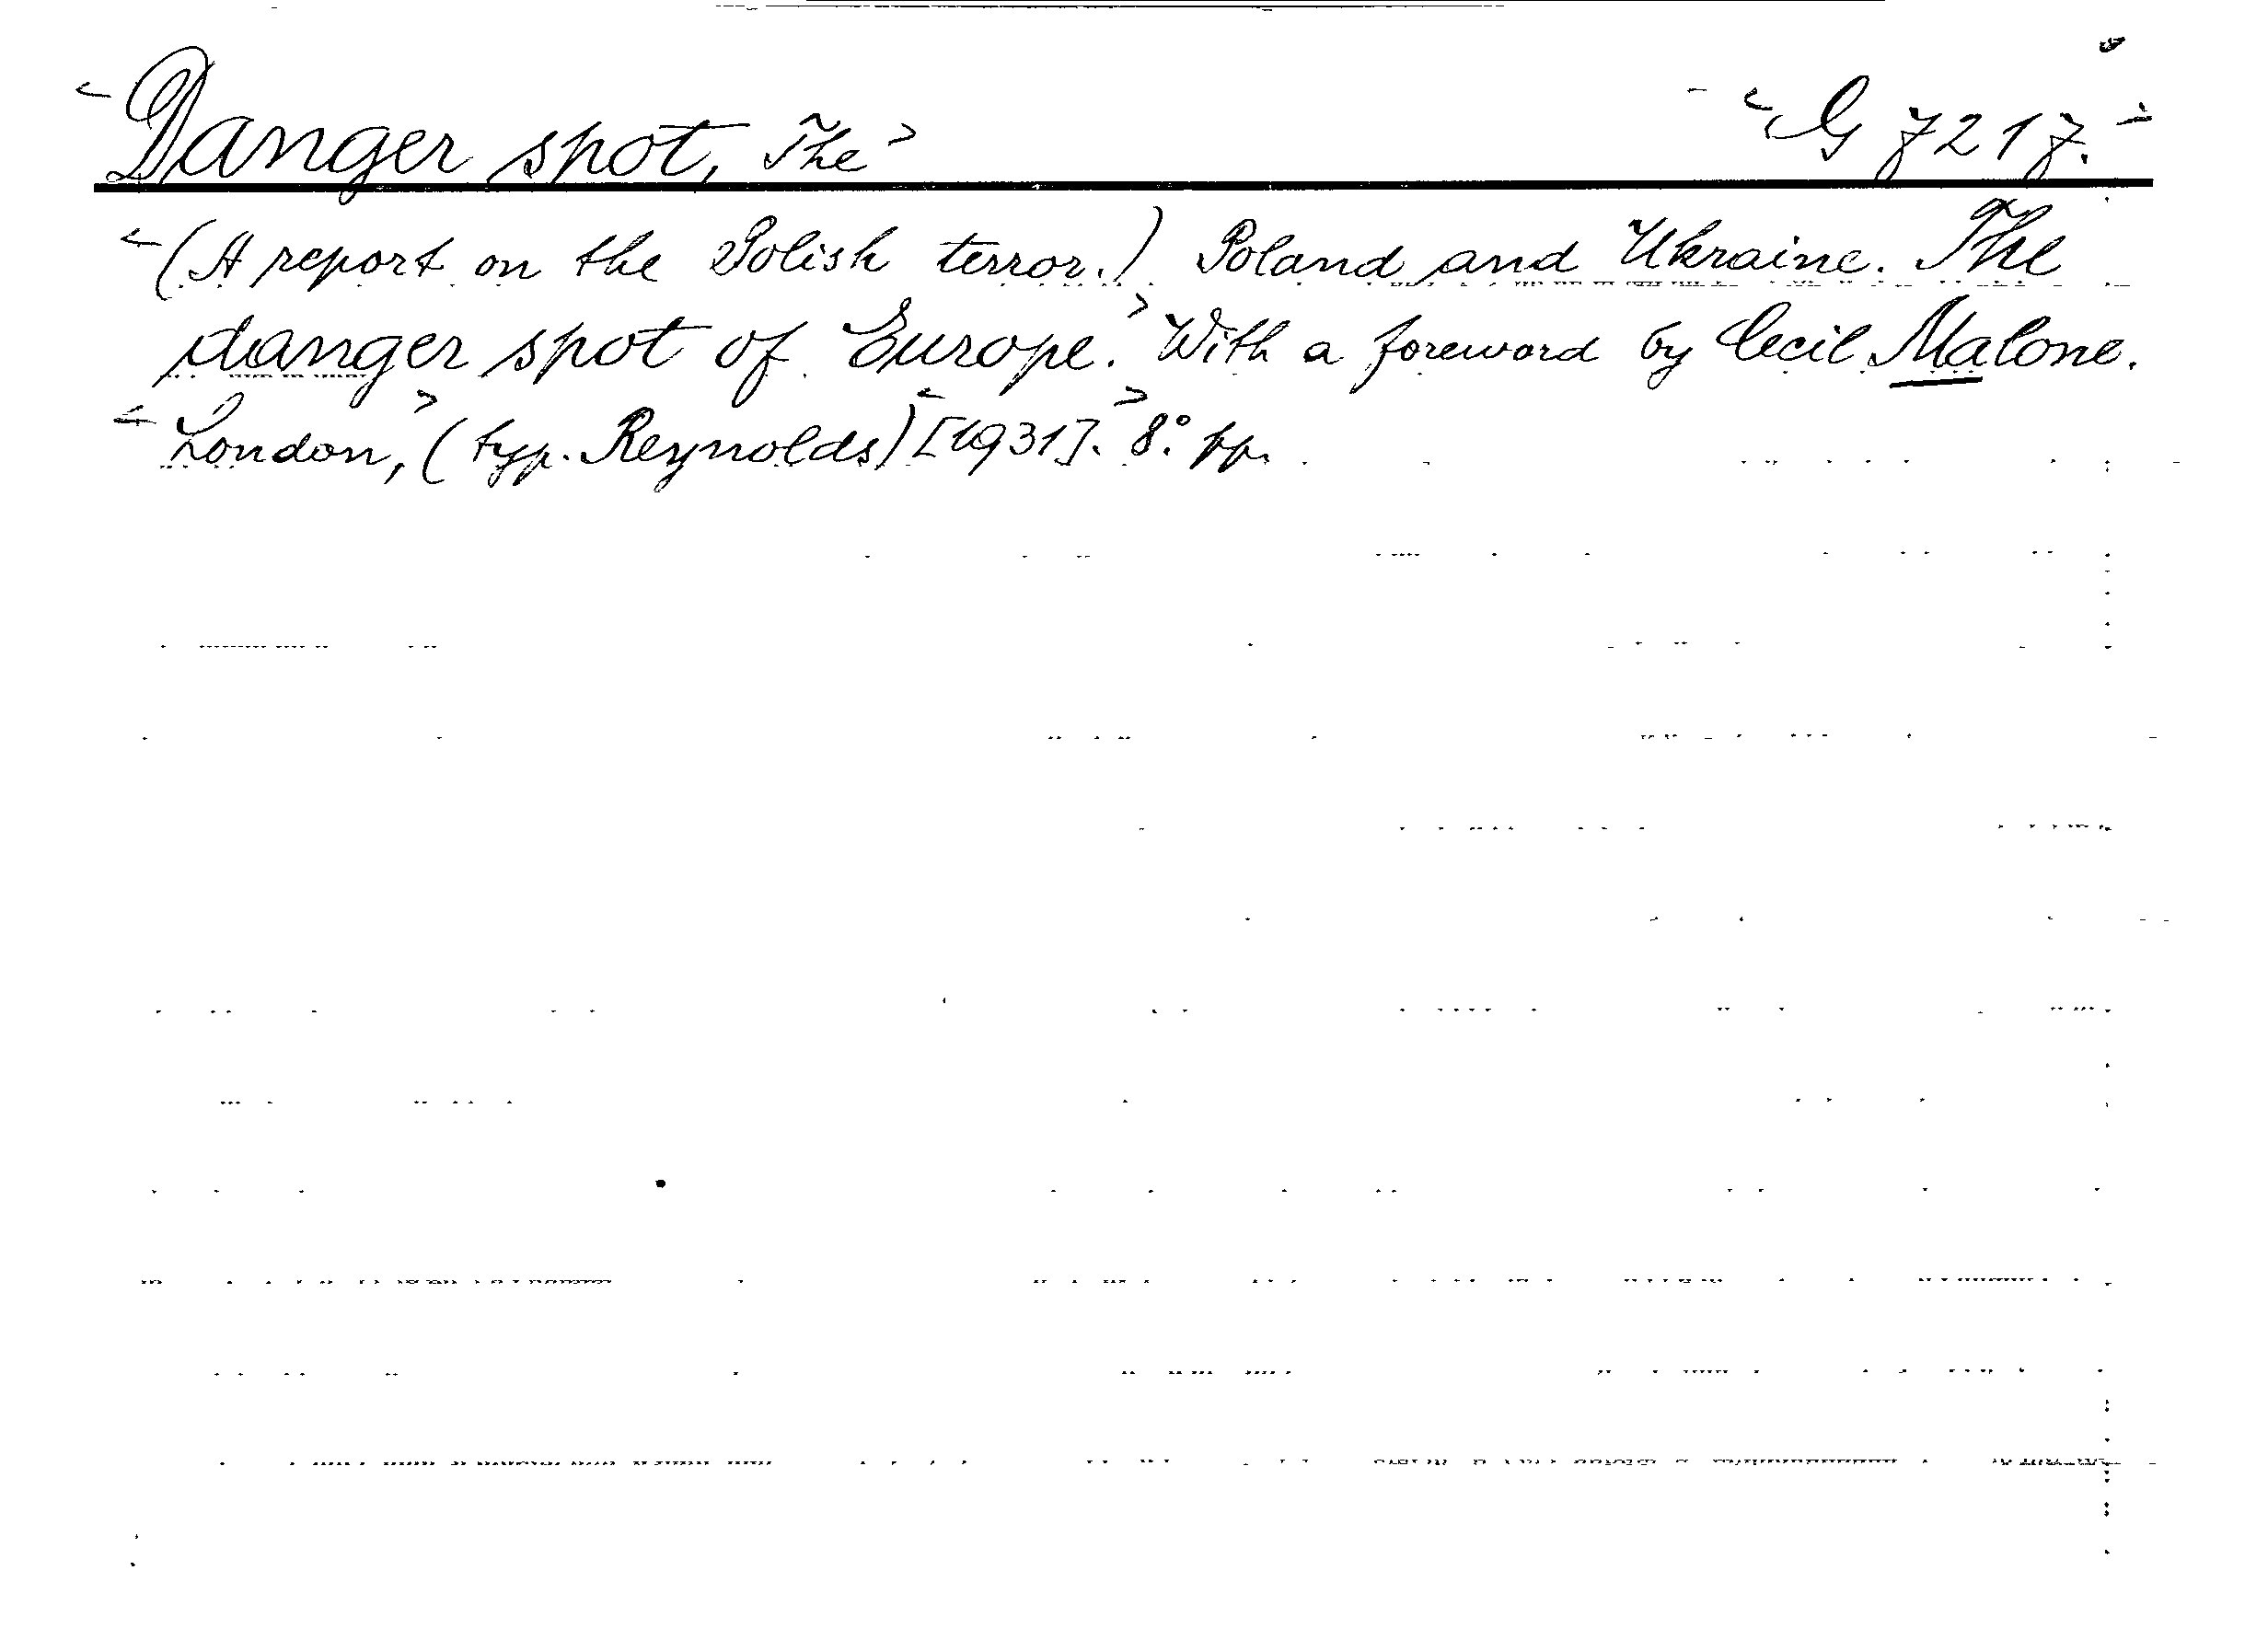 Danger spot, The G 7217.
(A report on the Polish terror.) Poland and Ukraine. The
danger spot of Europe. With a foreword by Cecil Malone.
London, (typ. Reynolds) [1931]. 8° pp.